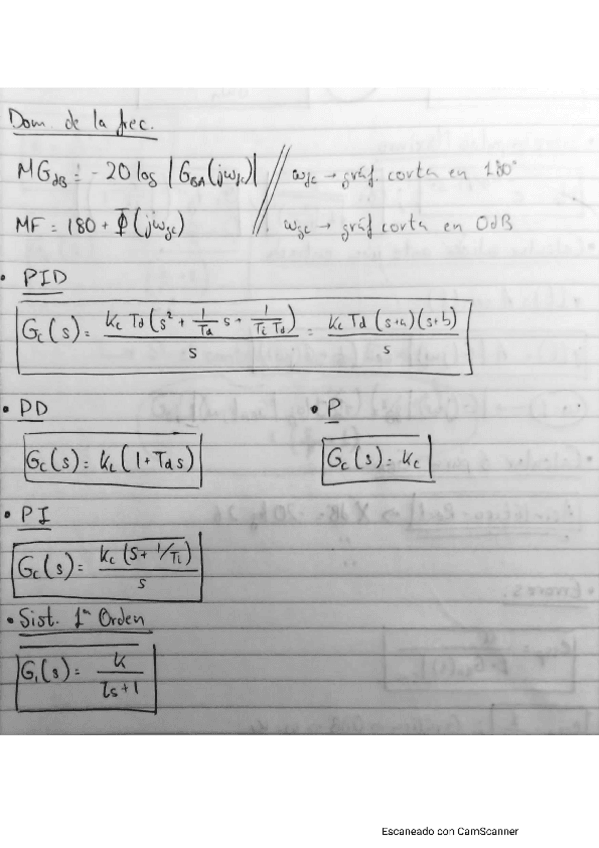 Dom. de la frec.
MG_dB = -20 log |G_BA(jω_fc)| // ω_fc → gráf. corta en 180°
MF = 180 + Φ(jω_gc) ω_gc → gráf corta en 0dB
• PID
G_c(s) = K_c Td (s² + 1/Td s + 1/(Ti Td)) / s = K_c Td (s+a)(s+b) / s
• PD • P
G_c(s) = K_c (1 + Td s) G_c(s) = K_c
• PI
G_c(s) = K_c (s + 1/Ti) / s
• Sist. 1er Orden
G_1(s) = K / (τs + 1)
Escaneado con CamScanner